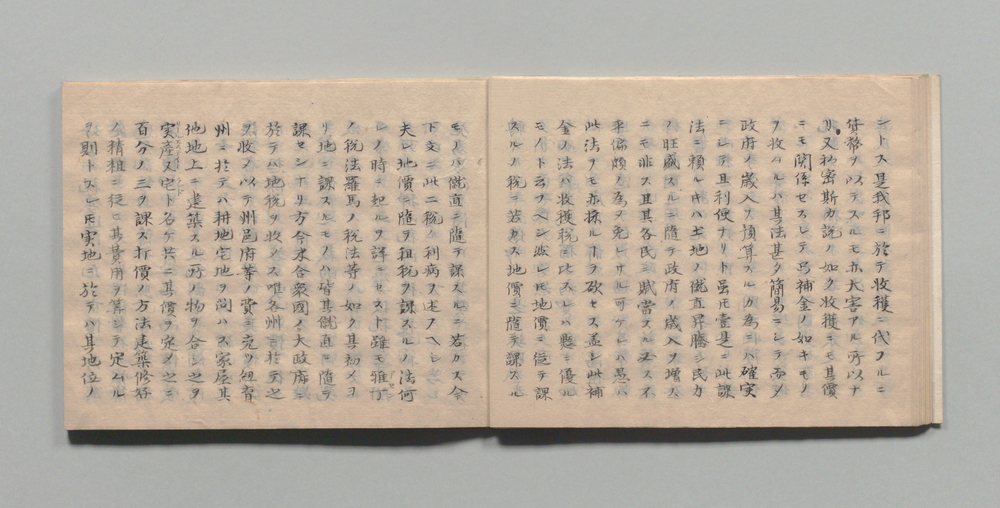 ントス是我邦ニ於テ收獲ニ代フルニ
貨務ヲ以テスルモ亦大害アル所以ナ
リ又弥密斯カ説ノ如ク收獲ニモ其價
ニモ関係セスシテ只補金ノ如キモノ
ヲ收ムルハ其法甚タ簡易ニシテ而メ
政府ノ歳入ヲ預算スルカ為ニハ確実
ニシテ且利便ナリト虽𪜈壹是ニ此課
法ニ頼ルキハ土地ノ僦直昇騰シ民力
ノ旺盛スルニ隨テ政府ノ歳入ヲ増ス
ニモ非ス且其各民ニ賦當スル必スス不
平偏頗ノ為ヲ免レサル可ケレハ愚ハ
此法ヲモ亦採ルヿヲ欲セス盖シ此補
金ノ法ハ收獲税ニ比スレハ懸ニ優ル
モノト云フヘシ然レ𪜈地價ニ従テ課
スルノ税ニ若カス地價ニ隨テ課スル
モノハ僦直ニ隨テ課スルニ若カス今
下文ニ此二税ノ利病ヲ述フヘシ
夫レ地價ニ隨ヲ租税ヲ課スルノ法何
レノ時ニ起ルヲ詳ニセスト雖モ雅典
ノ税法羅馬ノ税法等ノ如ク其初メヨ
リ地ニ課スルモノハ皆其僦直ニ隨テ
課セシナリ方今米合衆國ノ大政府ニ
於テハ地税ヲ收メス唯各州ニ於テ之
ヲ收メ以テ州邑府等ノ費ニ充ツ紐育
州ニ於テハ耕地宅地ヲ問ハス家屋其
他地上ニ建築スル所ノ物ヲ合シ之ヲ
実産又宅ト名ケ共ニ其價ヲ家メ之ニ
百分ノ三ヲ課ス打價ノ方法建築修好
ノ精粗ニ従ヒ其費用ヲ算シテ定ムル
ヲ則トスレ𪜈実地ニ於テハ其地位ノ